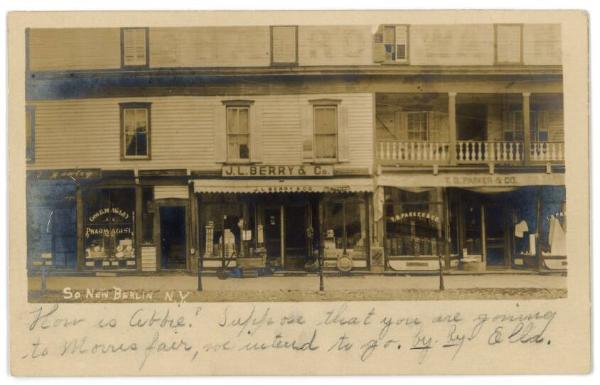 J.L. BERRY & Co.
T. B. PARKER & CO.
J.L. BERRY & CO.
PHARMACIST
PARKER & CO.
So. NEW BERLIN N.Y.
How is Abbie? Suppose that you are goning
to Morris fair, we intend to go. By-By- Ella.